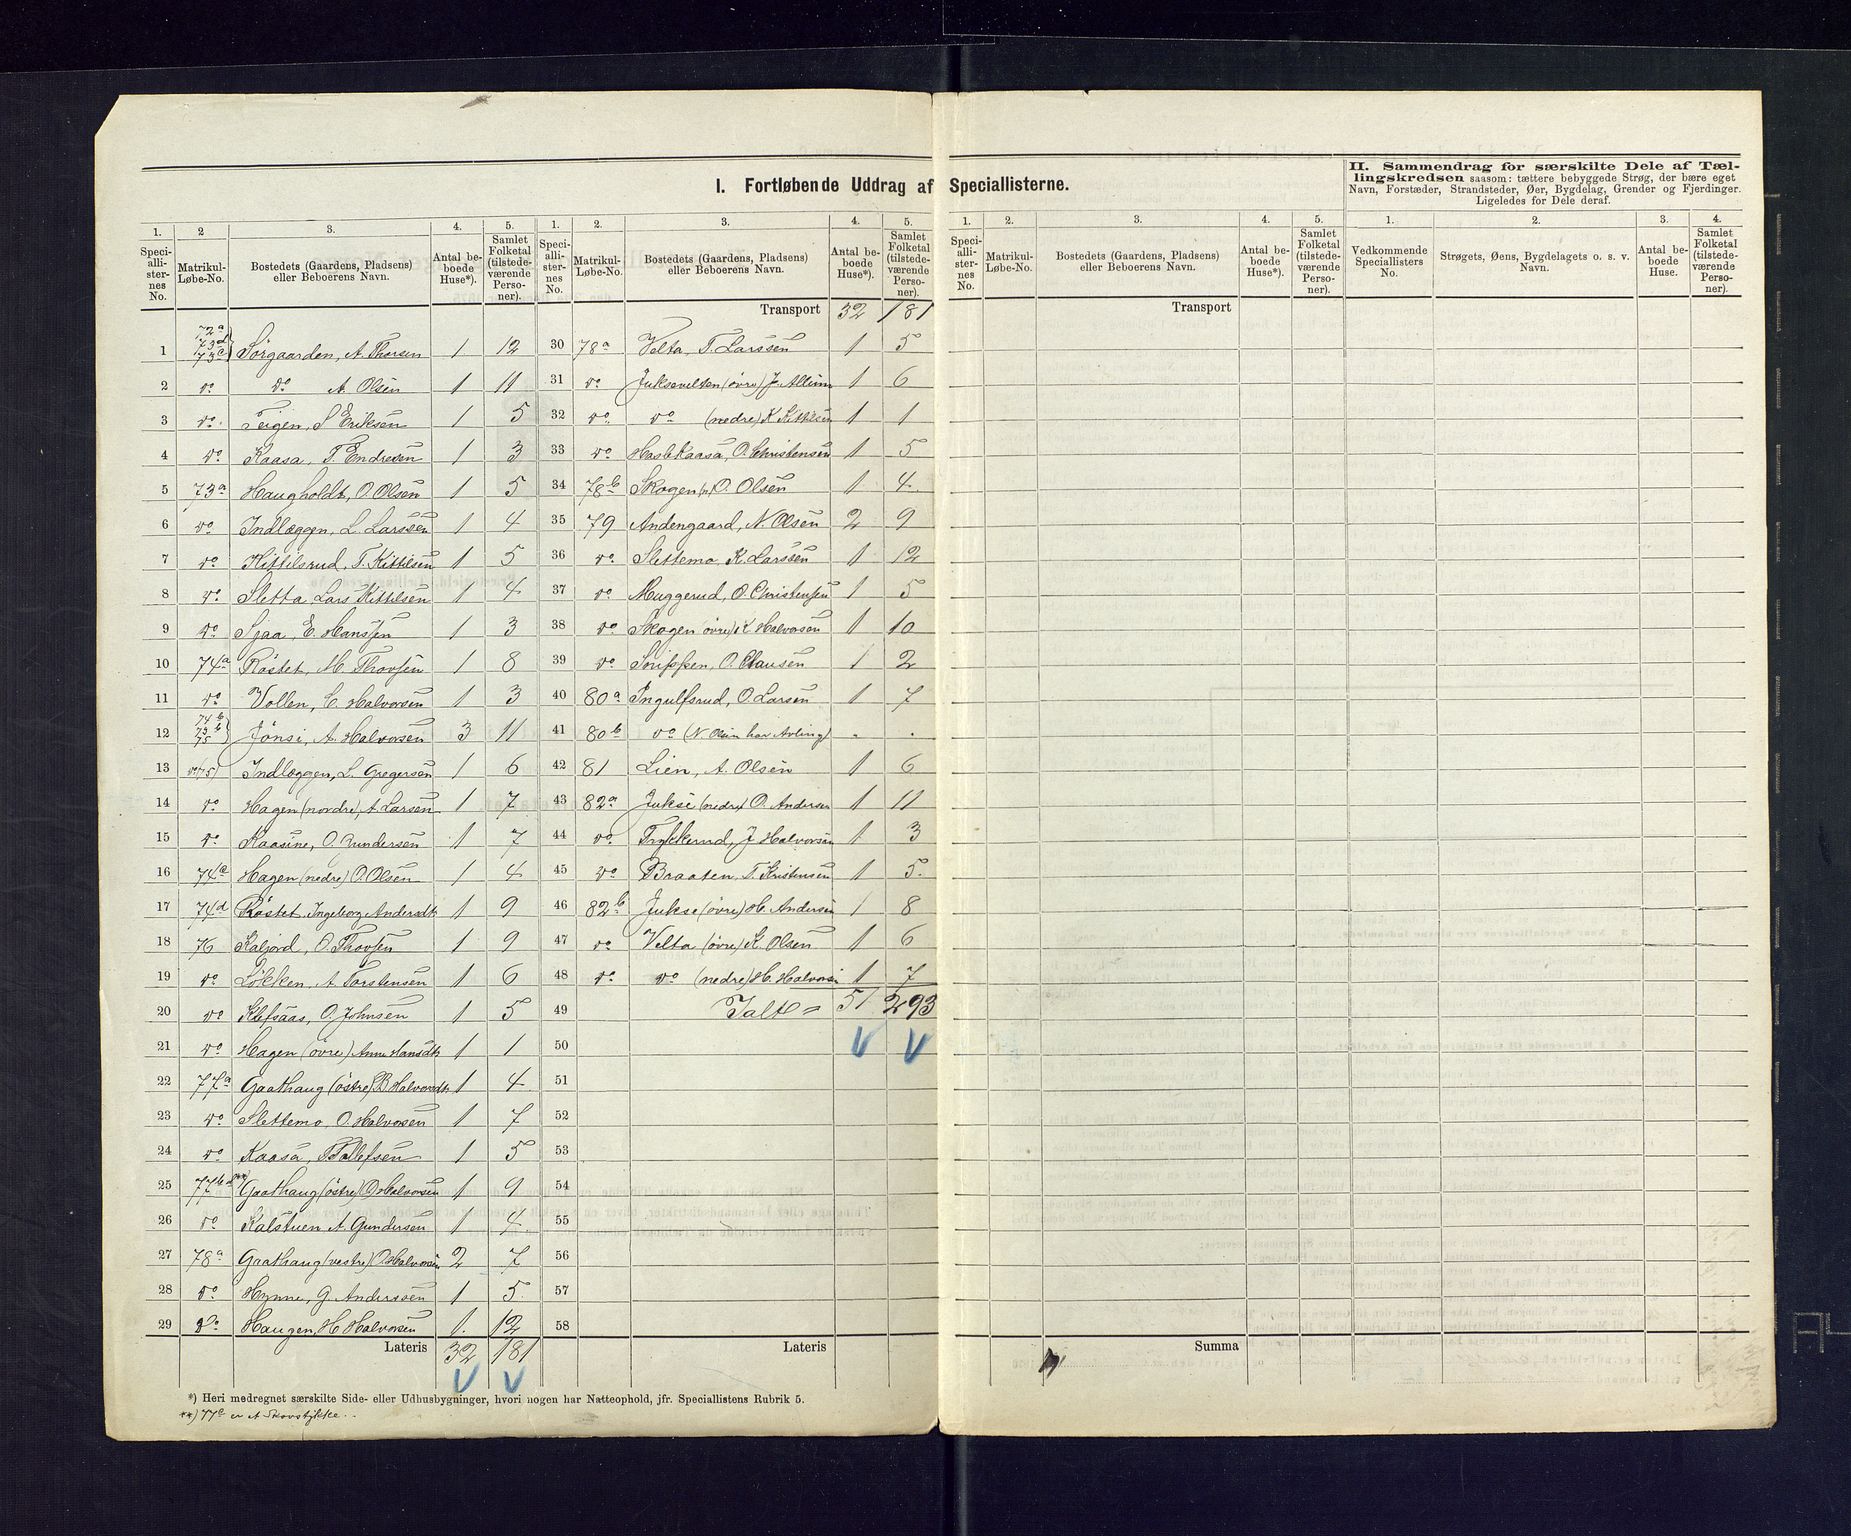 I. Fortløbende Uddrag af Speciallisterne.
II. Sammendrag for særskilte Dele af Tællingskredsen saasom: tættere bebyggede Strøg, der bære eget Navn, Forstæder, Strandsteder, Øer, Bygdelag, Grender og Fjerdinger. Ligeledes for Dele deraf.
1. 2 3. 4. 5.
Speciallisternes No. Matrikul-Løbe-No. Bostedets (Gaardens, Pladsens) eller Beboerens Navn. Antal beboede Huse*). Samlet Folketal (tilstedeværende Personer).
1 72a 73d 73c Sørgaarden, A. Thorsen 1 12
2 do do A. Olsen 1 11
3 do. Teigen, S Eriksen 1 5
4 do Kaasa, T. Endresen 1 3
5 73a Haugholdt, O. Olsen 1 5
6 do Indlæggen, L. Larssen 1 4
7 do Kittilsrud, T. Kittilsen 1 5
8 do Sletta, Lars Kittilsen 1 4
9 do Sjaa, E. Hanssen 1 3
10 74a Røstet, M. Thovsen 1 8
11 do Vollen, C. Halvorsen 1 3
12 74b 73b 75 Jønsi, A. Halvorsen 3 11
13 do(75) Indlæggen, L. Gregersen 1 6
14 do Hagen (nordre) A. Larsen 1 7
15 do Kaasine, O. Gundersen 1 7
16 74c Hagen (nedre) O. Olsen 1 4
17 74d Røstet, Ingeborg Andersdtr 1 9
18 76 Kaljord, O. Thovsen 1 9
19 do Løkken, A. Torstensen 1 6
20 do Klefsaas, O. Johnsen 1 5
21 do Hagen (øvre) Anne Hansdtr 1 1
22 77a Gaathaug (østre) B Halvorsdtr 1 4
23 do Slettemo, O. Halvorsen 1 7
24 do Kaasa, T Tollefsen 1 5
25 77b **) Gaathaug (østre) O. Halvorsen 1 9
26 do Kalstuen A. Gundersen 1 4
27 78a Gaathaug (vestre) O. Halvorsen 2 7
28 do Hynne, G. Anderssen 1 5
29 do Haugen, H Halvorsen 1. 12
Lateris 32 181
1. 2. 3. 4. 5.
Speciallisternes No. Matrikul-Løbe-No. Bostedets (Gaardens, Pladsens) eller Beboerens Navn. Antal beboede Huse*). Samlet Folketal (tilstedeværende Personer).
Transport 32 181
30 78a Velta, T. Larssen 1 5
31 do Juksevelten (øvre) J. 1 6
32 do do (nedre) K Kittilsen 1 1
33 do Haslekaasa, O. Christensen 1 5
34 78b Skogen O. Olsen 1 4
35 79 Andengaard, N. Olsen 2 9
36 do Slettemo K. Larssen 1 12
37 do Muggerud, O. Christensen 1 5
38 do Skogen øvre) K Halvorsen 1 10
39 do Snippen, O. Clausen 1 2
40 80a Ingulfsrud, O. Larsen 1 7
41 80b do (N Olsen har Avling) " "
42 81 Lien, A. Olsen 1 6
43 82a Jukse (nedre) O. Andersen 1 11
44 do Trykkerud, J Halvorsen 1 3
45 do Braaten, T. Kristensen 1 5.
46 82b Jukse (øvre) H. Andersen 1 8
47 do Velta (øvre) K. Olsen 1 6
48 do do (nedre) H. Halvorsen 1 7
49 Ialt = 51 293
50
51
52
53
54
55
56
57
58
Lateris
1. 2. 3. 4. 5.
Speciallisternes No. Matrikul-Løbe-No. Bostedets (Gaardens, Pladsens) eller Beboerens Navn. Antal beboede Huse*). Samlet Folketal (tilstedeværende Personer).
Transport
Summa
1. 2. 3. 4.
Vedkommende Speciallisters No. Strøgets, Øens, Bygdelagets o. s. v. Navn. Antal beboede Huse. Samlet Folketal (tilstedeværende Personer).
*) Heri medregnet særskilte Side- eller Udhusbygninger, hvori nogen har Natteophold, jfr. Speciallistens Rubrik 5.
**) 77c er et Skovstykke.